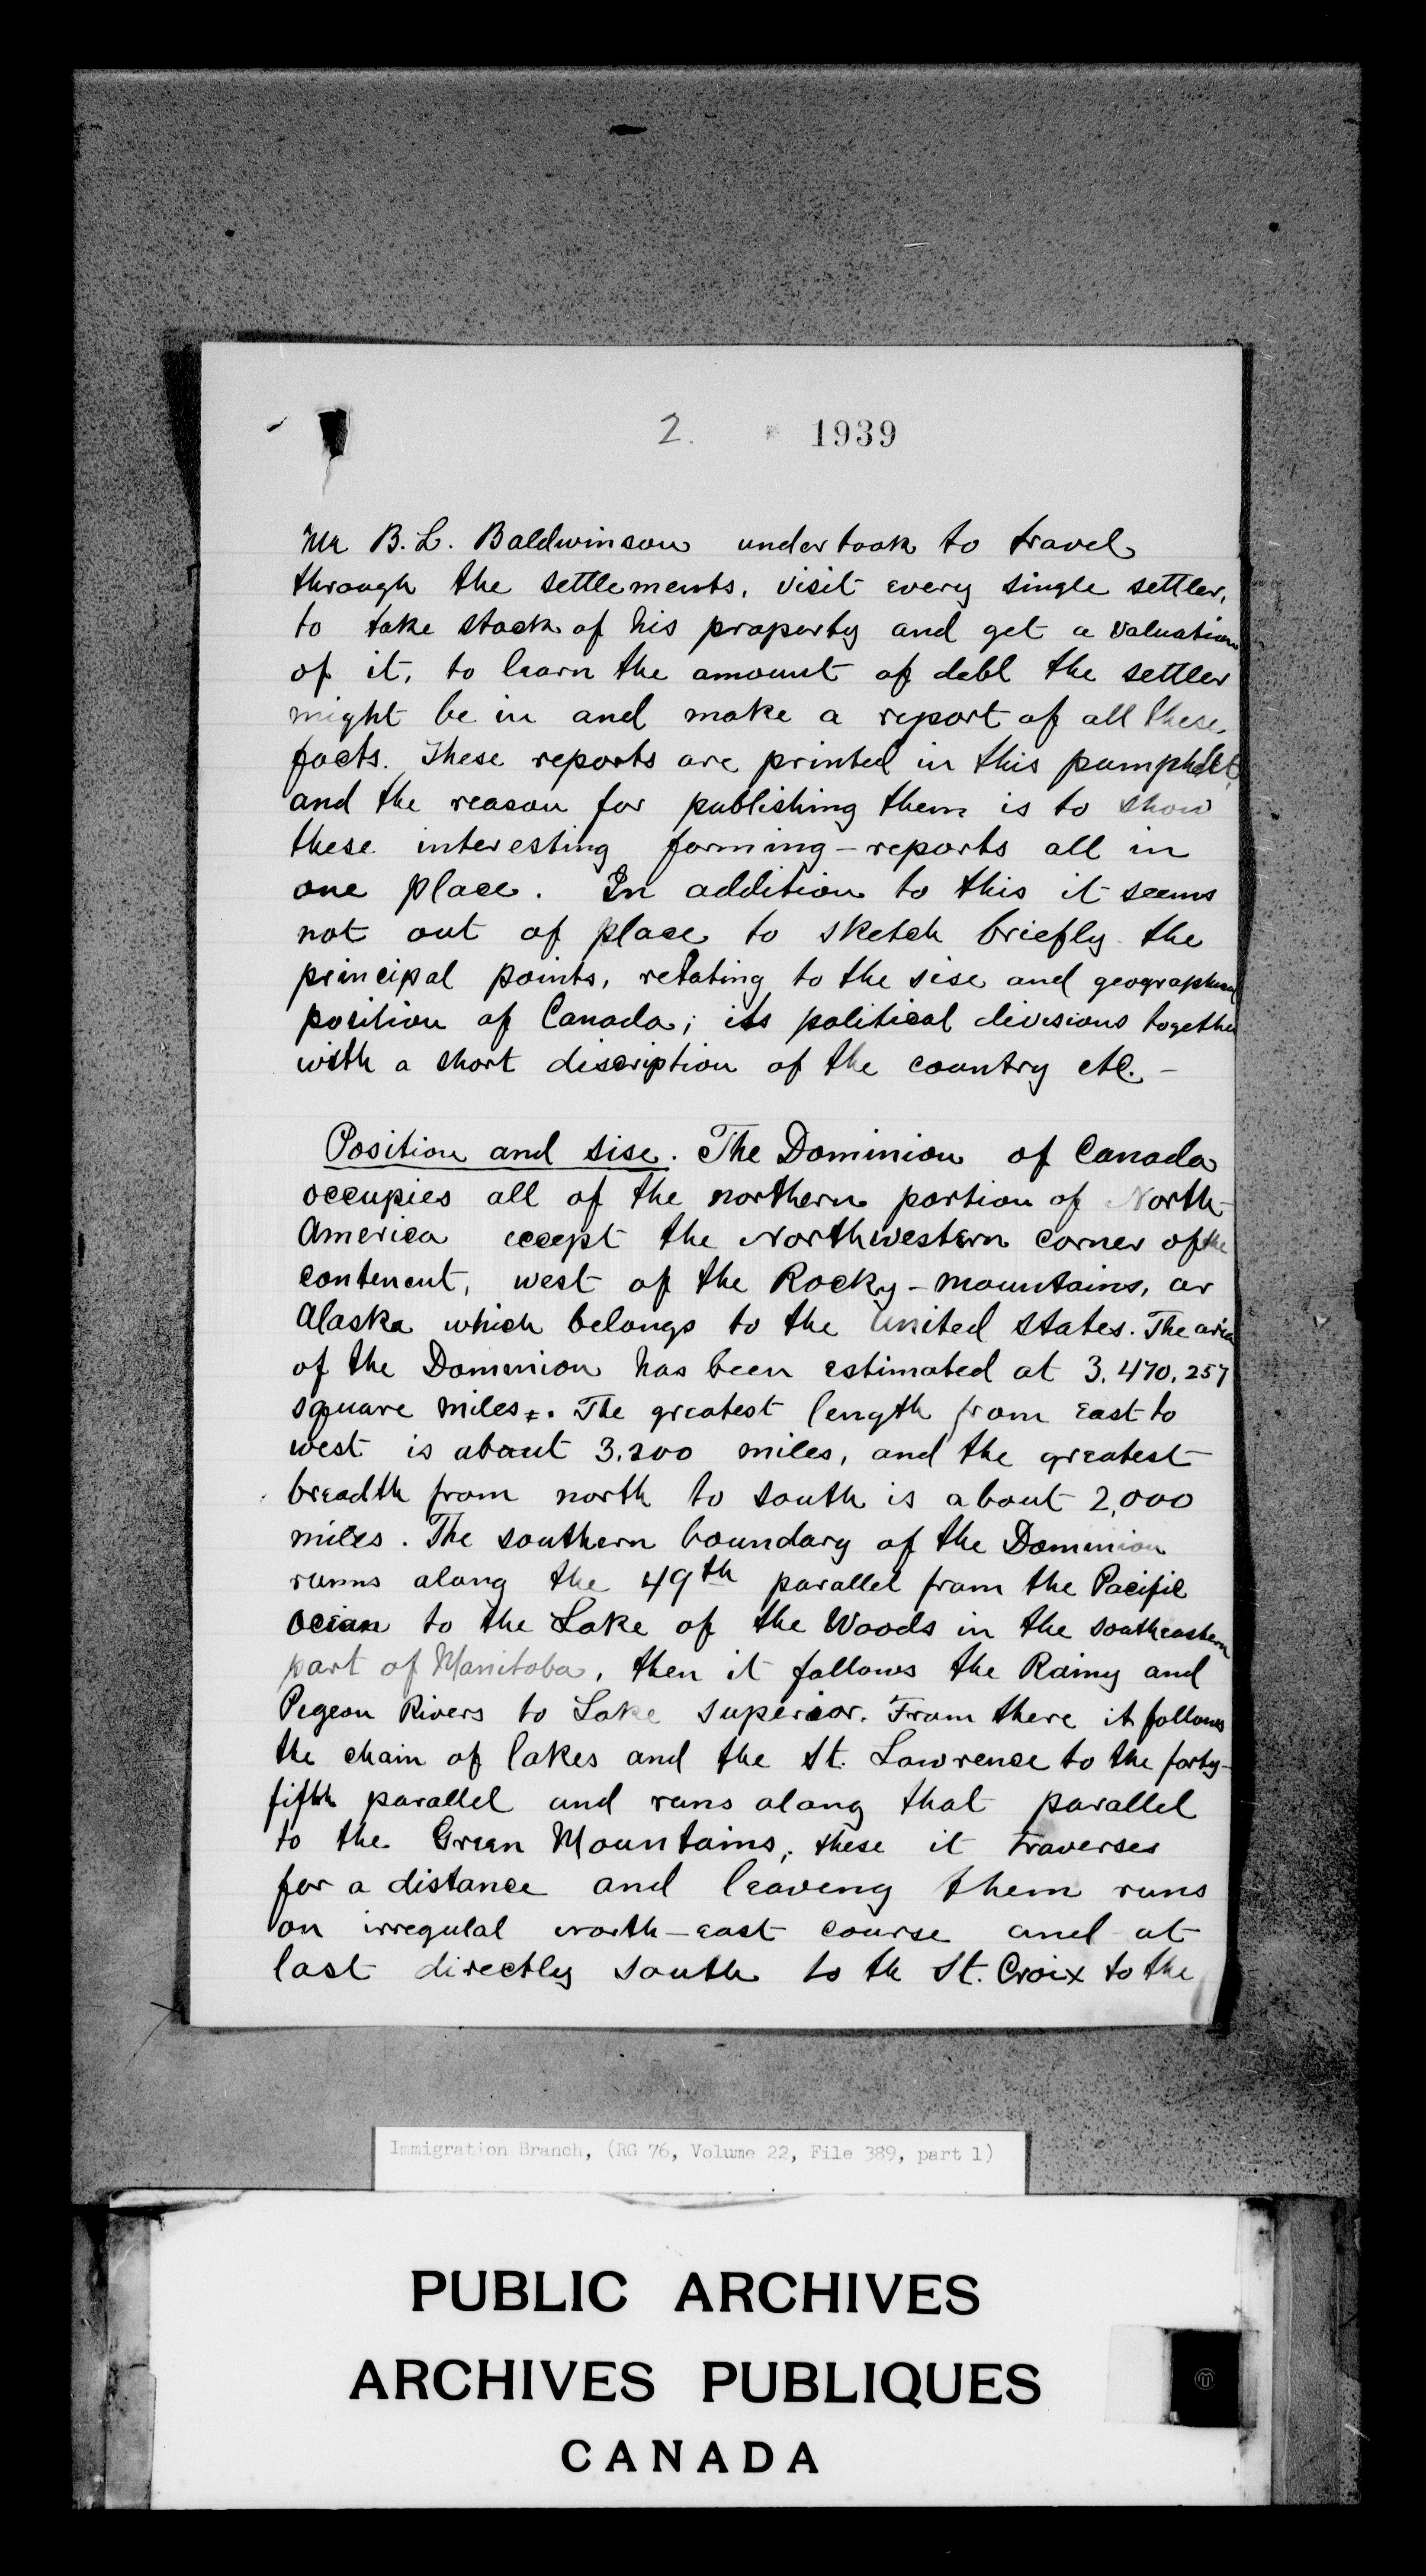 2. 1939
Mr B. L. Baldwinson undertook to travel
through the settlements, visit every single settler,
to take stock of his property and get a valuation
of it, to learn the amount of debt the settler
might be in and make a report of all these
facts. These reports are printed in this pamphlet,
and the reason for publishing them is to show
these interesting farming-reports all in
one place. In addition to this it seems
not out of place to sketch briefly the
principal points, retating to the sise and geographical
position of Canada; its political divisions together
with a short discription of the country etc. –
Position and sise. The Dominion of Canada
occupies all of the northern portion of North-
America eccept the Northwestern corner of the
contenent, west of the Rocky-mountains, or
Alaska which belongs to the United States. The area
of the Dominion has been estimated at 3,470,257
square miles. The greatest length from east to
west is about 3.200 miles, and the greatest
breadth from north to south is about 2,000
miles. The southern boundary of the Dominion
runns along the 49th parallel from the Pacific
Ocian to the Lake of the Woods in the southeastern
part of Manitoba, then it follows the Rainy and
Pegeon Rivers to Lake Superior. From there it follows
the chain of lakes and the St. Lawrence to the forty-
fifth parallel and runs along that parallel
to the Green Mountains, these it traverses
for a distance and leaveng them runs
on irregulal north-east course and at
last directly south to th St. Croix to the
Immigration Branch, (RG 76, Volume 22, File 389, part 1)
PUBLIC ARCHIVES
ARCHIVES PUBLIQUES
CANADA